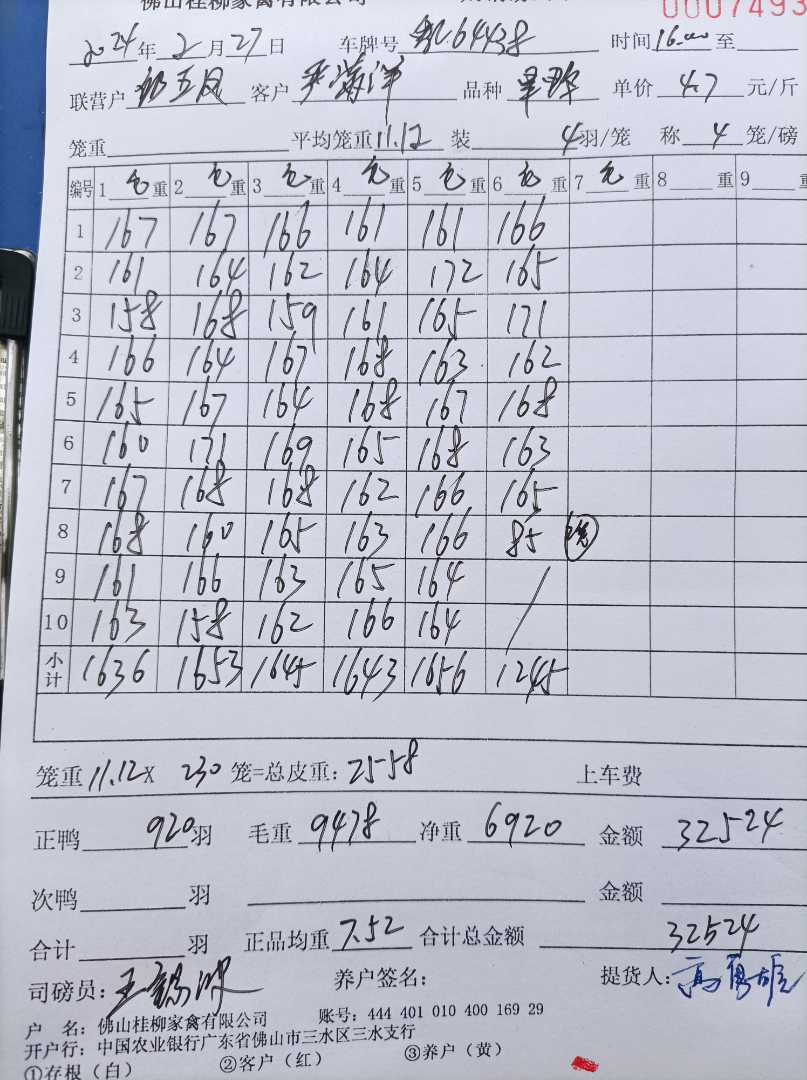 佛山桂柳家禽有限公司 0007493
2024年2月27日 车牌号 64438 时间16:00至
联营户 客户 品种 单价 4.7 元/斤
笼重 平均笼重11.12 装 4羽/笼 称 4 笼/磅
编号 1 毛 重 2 毛 重 3 毛 重 4 毛 重 5 毛 重 6 毛 重 7 毛 重 8 重 9 重
1 167 167 166 161 161 166
2 161 164 162 164 172 165
3 158 168 159 161 165 171
4 166 164 167 168 163 162
5 165 167 164 168 167 168
6 160 171 169 165 168 163
7 167 168 168 162 166 165
8 168 160 165 163 166 85
9 161 166 163 165 164 /
10 163 158 162 166 164
小计 1636 1653 1645 1643 1656 1245
笼重 11.12 X 230 笼=总皮重: 2558 上车费
正鸭 920 羽 毛重 9478 净重 6920 金额 32524
次鸭 羽 金额
合计 羽 正品均重 7.52 合计总金额 32524
司磅员: 王 养户签名: 提货人: 高
户 名: 佛山桂柳家禽有限公司 账号: 444 401 010 400 169 29
开户行: 中国农业银行广东省佛山市三水区三水支行
①存根(白) ②客户(红) ③养户(黄)